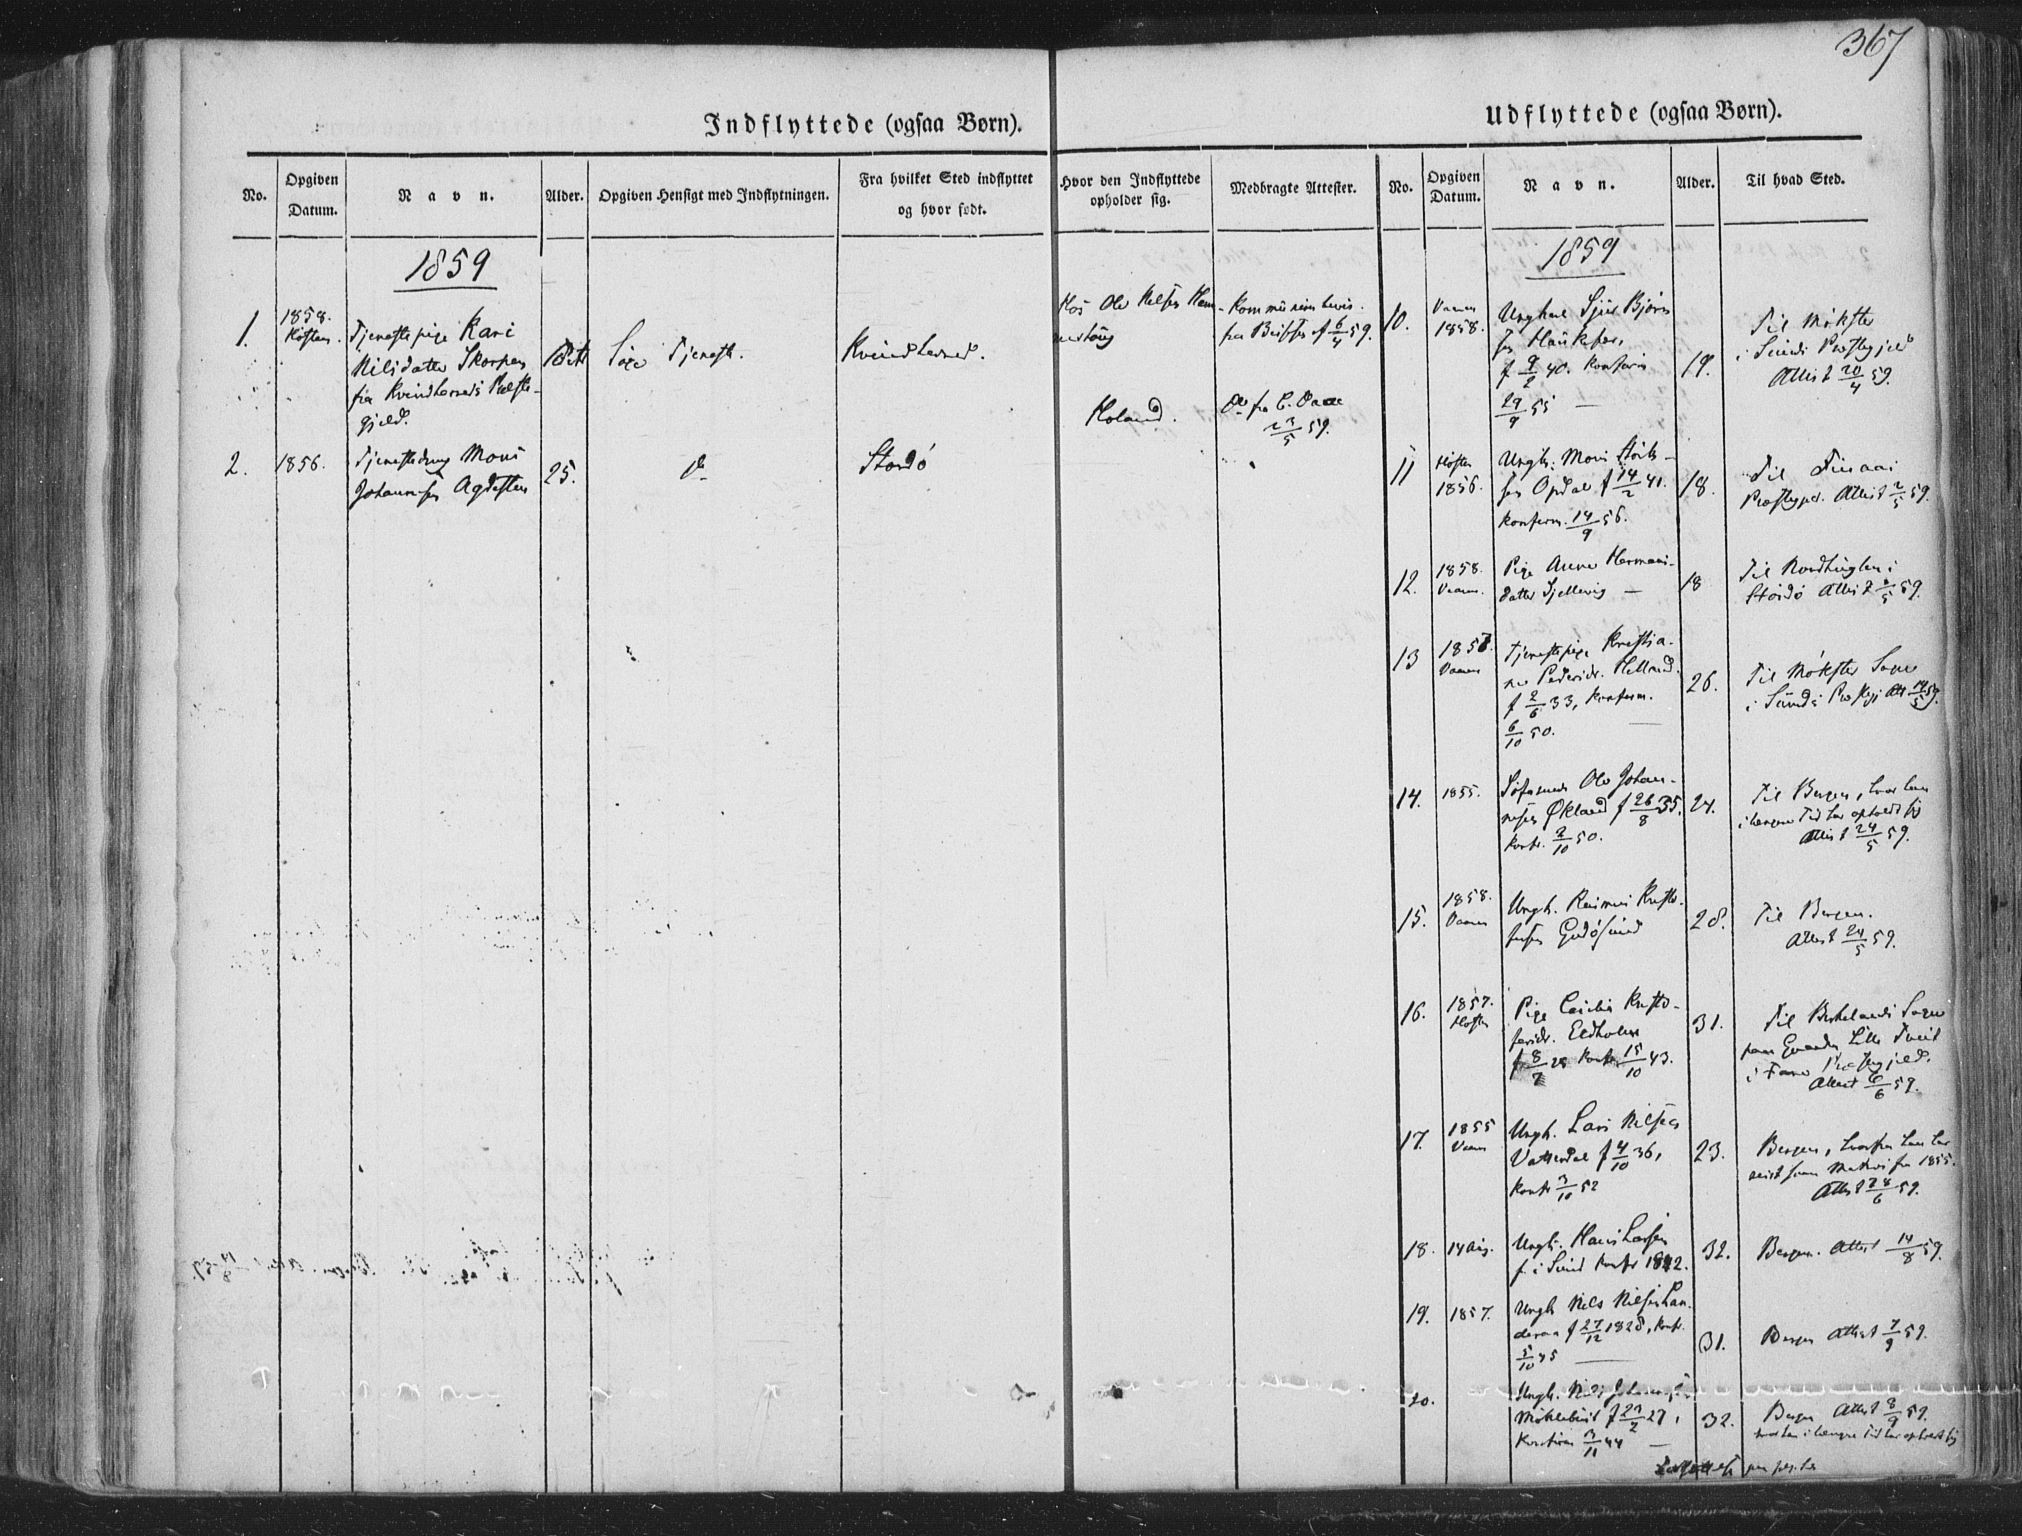 367
Indflyttede (ogsaa Børn).
No.
Opgiven Datum.
Navn.
Alder.
Opgiven Hensigt med Indflytningen.
Fra hvilket Sted indflyttet
og hvor født.
Hvor den Indflyttede
opholder sig.
Medbragte Attester.
1859
1.
1858.
Høsten.
Tjenestepige Kari
Nilsdatter Skorpen
fra Kvindherreds Præste-
gjeld.
Søge Tjeneste.
Kvindherred.
Hos Ole Nelsen
fra 6/4 59.
2.
1856.
Tjenestedreng Mons
Johannesen Agdesten
25.
do
Stordø
Holand.
Do fra C. Daae
23/5 59.
Udflyttede (ogsaa Børn).
No.
Opgiven
Datum.
Navn.
Alder.
Til hvad Sted.
1859
10.
Vaaren
1858.
Ungkarl Sjur Bjørn
sen
f 9/2 40. konfirm
29/9 55 —
19.
Til Møkster
i Sunds Præstegjeld
Attest 20/4 59.
11
Høsten
1856.
Ungk. Mons
sen Opdal f 14/2 41.
konfirm. 14/9 56.
18.
Til
Præstegjeld. Attest 2/5 59.
12.
1858.
Vaaren.
Pige Anne Hermans-
datter —
18
Til Nordhuglen i
Stordø Attest /5 59.
13
1857.
Vaaren
Tjenestepige Kristia-
ne Pedersdr. Helland.
f 2/6 33, konfirm.
6/10 50. —
26.
Til Møkster Sogn
i Sunds Præstegj Att 14/5 59.
14.
1855.
Søfarende Ole Johan-
nesen Økland f 26/8 35.
konf. 2/10 50.
24.
Til Bergen, hvor han
i længere Tid har opholdt sig
Attest 24/5 59.
15.
1858.
Vaaren
Ungk. Rasmus Kristo-
fersen Godøsund
28.
Til Bergen.
Attest 24/5 59.
16.
1857.
Høsten
Pige Cecilia Kristo-
fersdr. Eldholm
f 8/7 28 konf. 15/10 43.
31.
Til Birkelands Sogn
paa Gaarden Lille Tveit
i Fane Præstegjeld.
Attest 6/6 59.
17.
1855
Vaaren
Ungk. Lars Nilsen
Vatterdal f 4/10 36,
konf 3/10 52
23.
Bergen, hvorfra han har
reist fra 1855.
Attest 28/6 59.
18.
14 Aug.
Ungk. Hans Larsen
f. i Sund konf 1842.
32.
Bergen. Attest 14/8 59.
19.
1857.
Ungk Nels Nilsen Lan-
deraa f 27/12 1828, konf.
5/10 45 —
31.
Bergen Attest 7/9 59.
20.
Ungk. Nils Johannesen
Møklebust f 21/2 27,
Konfirm 3/11 44 —
32.
Bergen Attest 8/9 59.
hvor han i længere Tid har opholdt sig